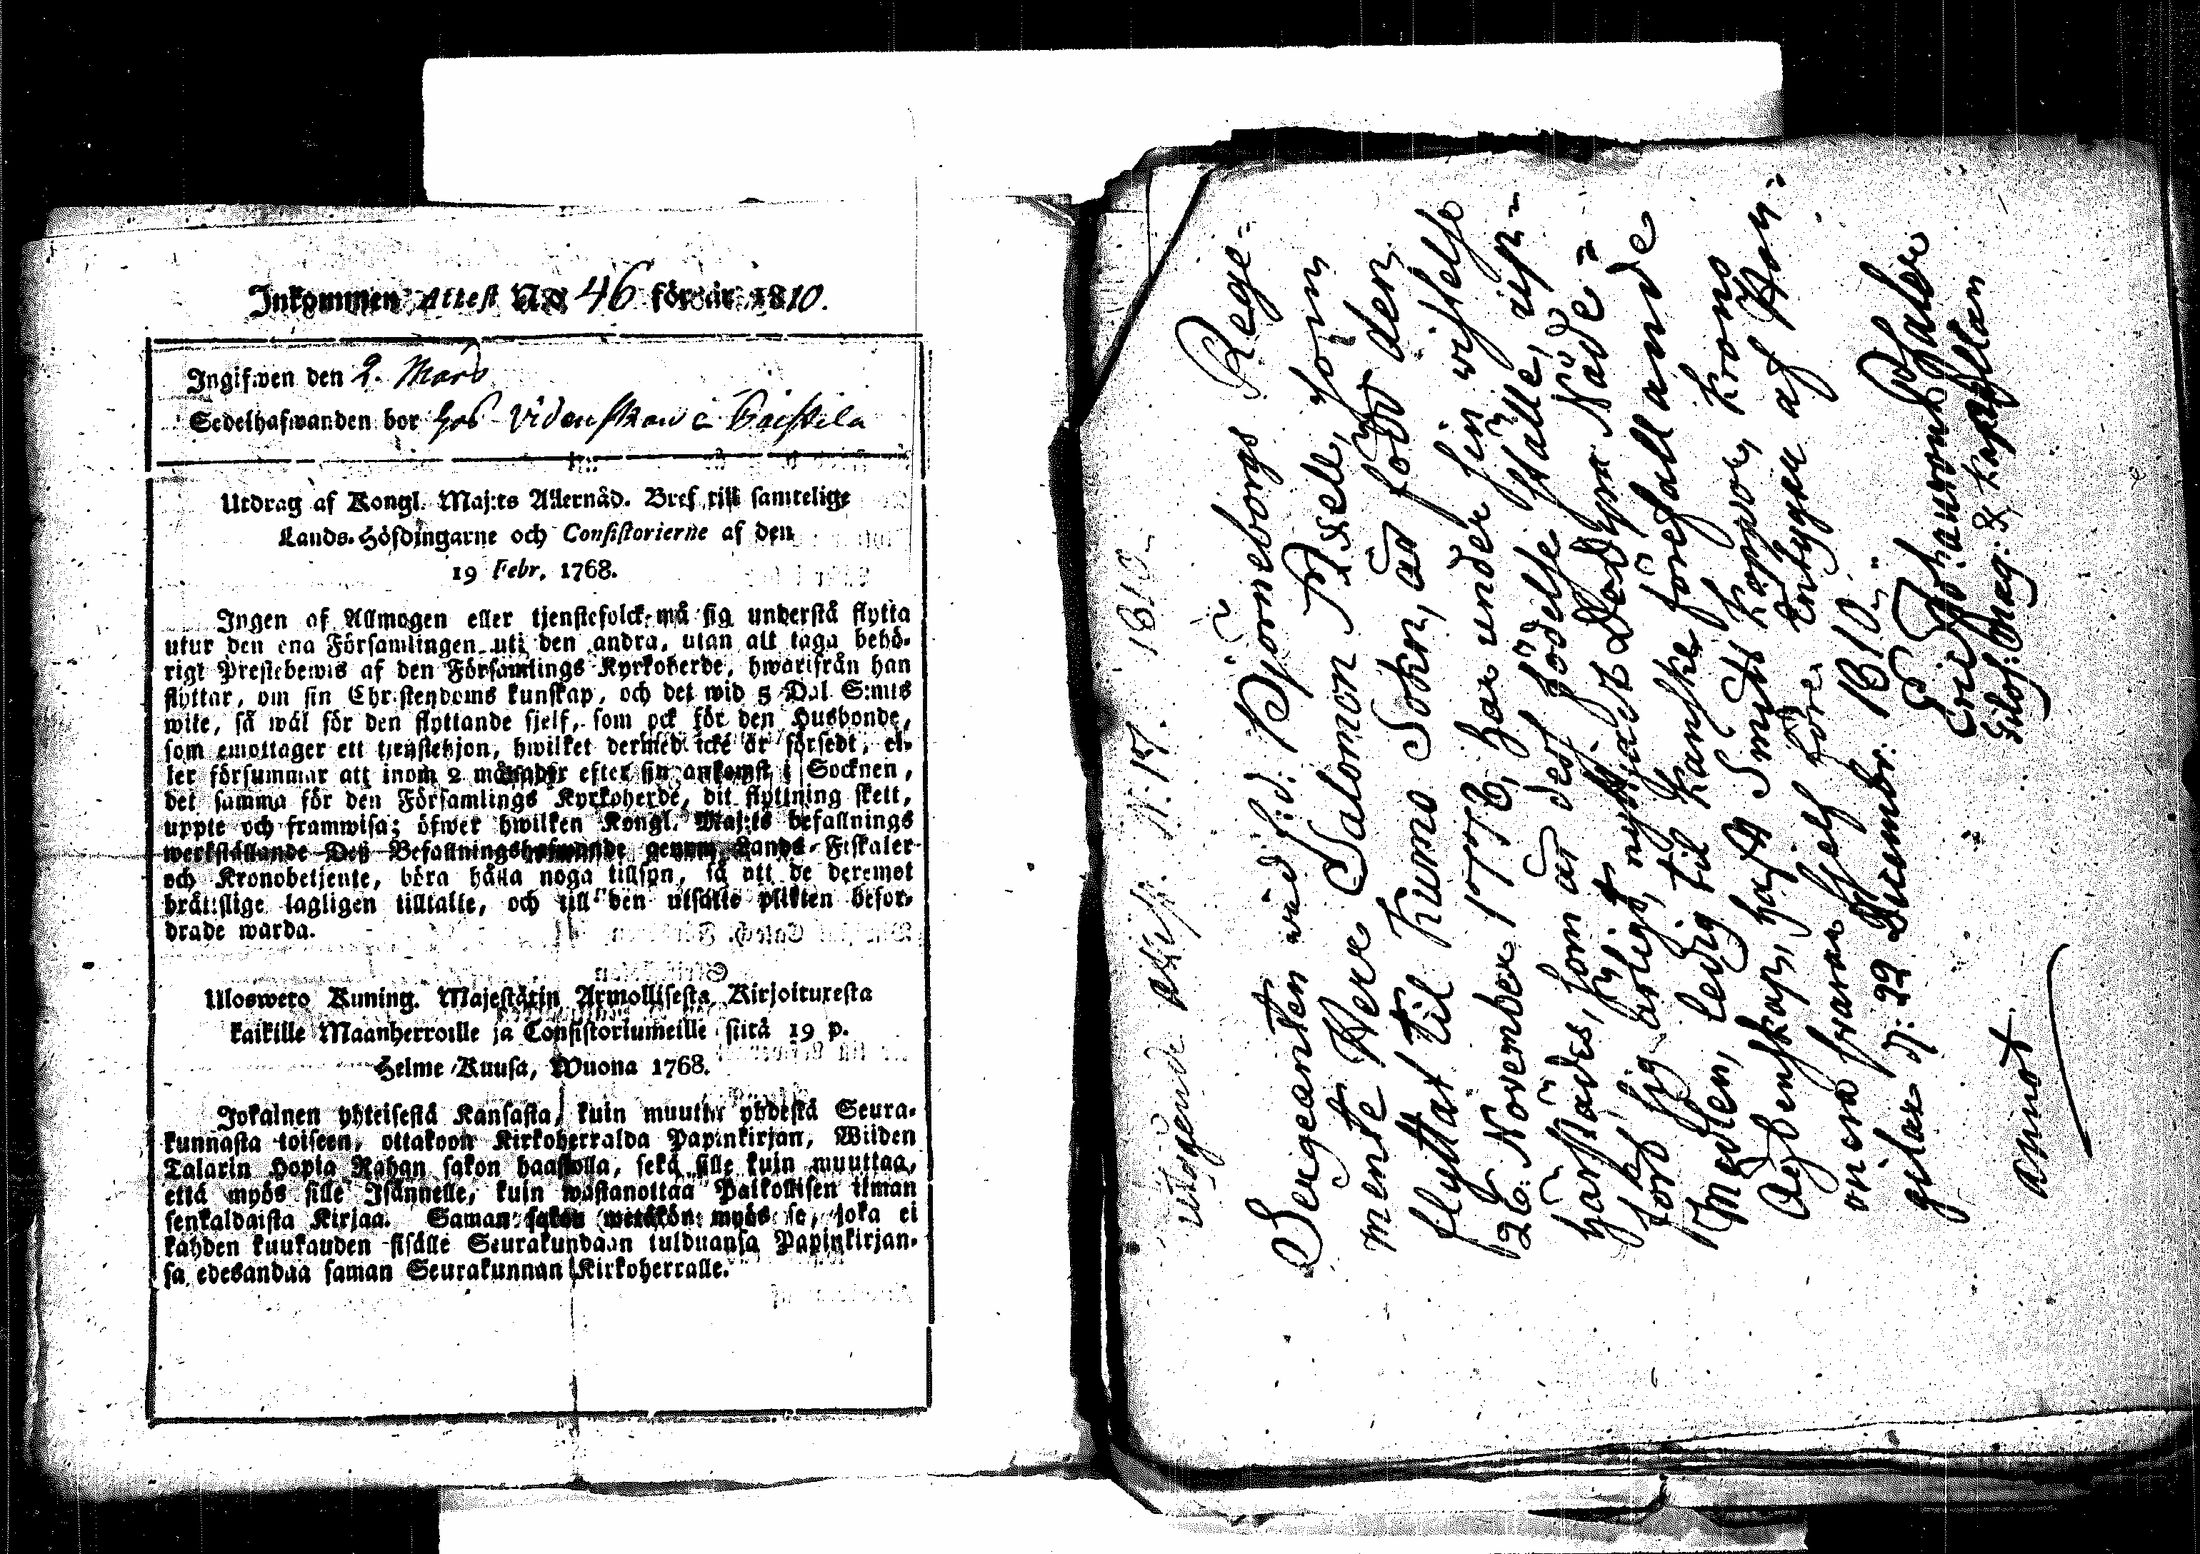 Inkommen Attest N:o 46 för år 1810.
Ingifwen den 2. Mars
Sedelhafwanden bor hos
Utdrag af Kongl. Maj:ts Allernåd. Bref till samtelige
Lands-Höfdingarne och Consistorierne af den
19 Febr. 1768.
Ingen af Allmogen eller tjenstefolck må sig understå flytta
utur den ena Församlingen uti den andra, utan att taga behö-
rigt Prestebewis af den Församlings Kyrkoherde, hwarifrån han
flyttar, om sin Christendoms kunskap, och det wid 5 Dal. S:mts
wite, så wäl för den flyttande sjelf, som ock för den Husbonde,
som emottager ett tjenstehjon, hwilket dermed icke är försedt, el-
ler försummar att inom 2 månader efter sin ankomst i Socknen,
det samma för den Församlings Kyrkoherde, dit flyttning skett,
uppte och framwisa; öfwer hwilken Kongl. Maj:ts befallnings
werkställande Deß Befallningshafwande genom Lands-Fiskaler
och Kronobetjente, böra hålla noga tillsyn, så att de deremot
bråttslige lagligen tilltalte, och till den utsatte plikten befor-
drade warda.
Uloswero Kuning. Majestätin Armollisesta Kirjoituxesta
kaikille Maanherroille ja Consistoriumeille siitä 19 p.
Helme Kuusa, Wuona 1768.
Jokainen yhteisestä Kansasta, kuin muutta yhdestä Seura-
kunnasta toiseen, ottakoon Kirkoherralda Papinkirjan, Wiiden
Talarin Hopia Rahan sakon haastolla, sekä sille kuin muuttaa,
että myös sille Isännelle, kuin wastanottaa Palkollisen ilman
senkaldaista Kirjaa. Saman sakon wetäkön myös se, joka ei
kahden kuukauden sisälle Seurakundaan tulduansa Papinkirjan-
sa edesandaa saman Seurakunnan Kirkoherralle.
utgående attest. N: 17. 1810
Sergeanten wid f: d: Björneborgs Rege-
mente Herr Salomon Adell, som
flyttat til Kumo Sokn, är född den
26. November 1773, har under sin wistelse
härstädes, som är des födelse ställe, upp-
fört sig ärligt,
Medlen, ledig til hanske förefallande
Ägtenskap, haft Smitt koppor,
framt sjelf före. Intygar af Hon-
gilax d: 22 Decembr: 1810.
Eric Johan
Filos: Mag: & kapellan